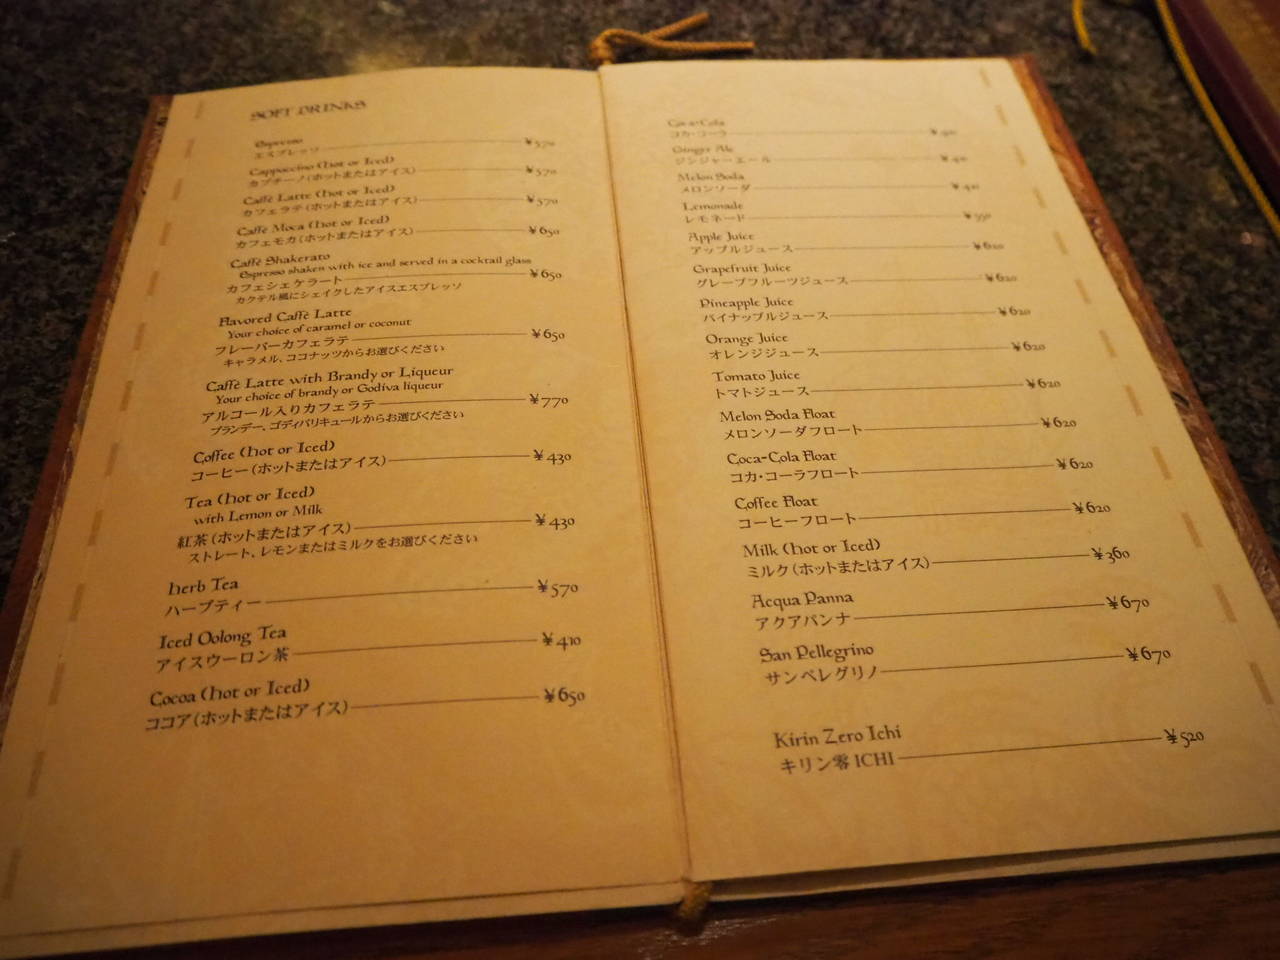 SOFT DRINKS
Espresso
エスプレッソ ¥570
Cappuccino (hot or Iced)
カプチーノ(ホットまたはアイス) ¥570
Caffè Latte (hot or Iced)
カフェラテ(ホットまたはアイス) ¥570
Caffè Moca (hot or Iced)
カフェモカ(ホットまたはアイス) ¥650
Caffè Shakerato
Espresso shaken with ice and served in a cocktail glass
カフェシェケラート ¥650
カクテル風にシェイクしたアイスエスプレッソ
Flavored Caffè Latte
Your choice of caramel or coconut
フレーバーカフェラテ ¥650
キャラメル、ココナッツからお選びください
Caffè Latte with Brandy or Liqueur
Your choice of brandy or Godiva liqueur
アルコール入りカフェラテ ¥770
ブランデー、ゴディバリキュールからお選びください
Coffee (hot or Iced)
コーヒー(ホットまたはアイス) ¥430
Tea (hot or Iced)
with Lemon or Milk
紅茶(ホットまたはアイス) ¥430
ストレート、レモンまたはミルクをお選びください
herb Tea
ハーブティー ¥570
Iced Oolong Tea
アイスウーロン茶 ¥410
Cocoa (hot or Iced)
ココア(ホットまたはアイス) ¥650
Coca-Cola
コカ・コーラ
Ginger Ale
ジンジャーエール ¥410
Melon Soda
メロンソーダ ¥410
Lemonade
レモネード ¥550
Apple Juice
アップルジュース ¥620
Grapefruit Juice
グレープフルーツジュース ¥620
Pineapple Juice
パイナップルジュース ¥620
Orange Juice
オレンジジュース ¥620
Tomato Juice
トマトジュース ¥620
Melon Soda Float
メロンソーダフロート ¥620
Coca-Cola Float
コカ・コーラフロート ¥620
Coffee Float
コーヒーフロート ¥620
Milk (hot or Iced)
ミルク(ホットまたはアイス) ¥360
Acqua Panna
アクアパンナ ¥670
San Pellegrino
サンペレグリノ ¥670
Kirin Zero Ichi
キリン零ICHI ¥520